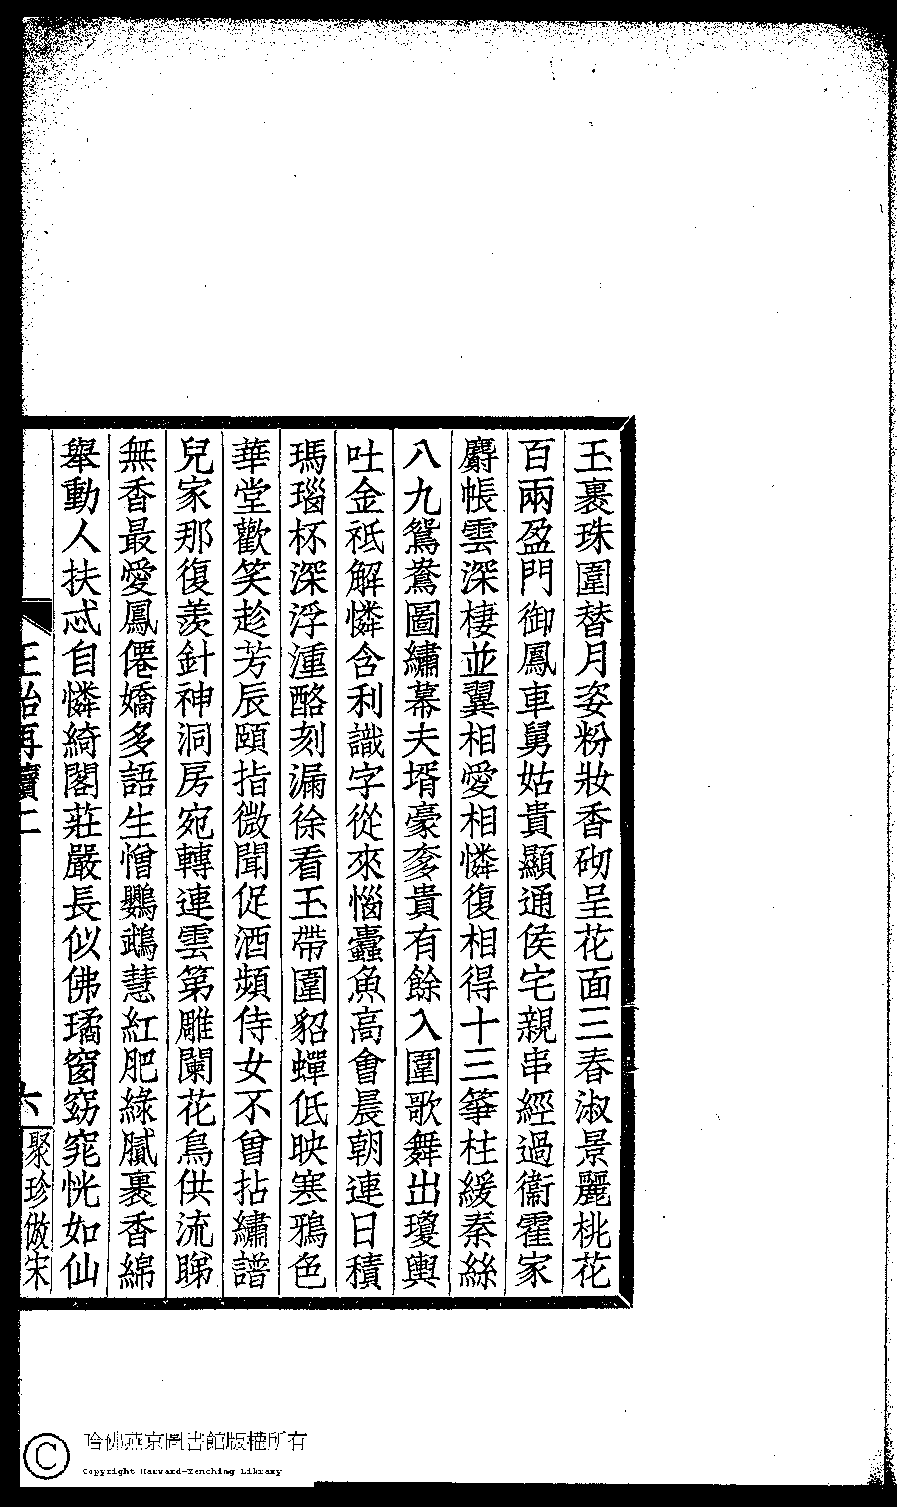 玉裹珠圍替月姿粉妝香砌呈花面三春淑景麗桃花
百兩盈門御鳳車舅姑貴顯通侯宅親串經過衞霍家
麝帳雲深棲並翼相愛相憐復相得十三箏柱緩秦絲
八九鴛鴦圖繡幕夫壻豪奓貴有餘入圍歌舞出瓊輿
吐金祗解憐含利識字從來惱蠹魚高會晨朝連日積
瑪瑙杯深浮湩酪刻漏徐看玉帶圍貂蟬低映寒鴉色
華堂歡笑趁芳辰頤指微聞促酒頻侍女不曾拈繡譜
兒家那復羨針神洞房宛轉連雲第雕闌花鳥供流睇
無香最愛鳳僊嬌多語生憎鸚鵡慧紅肥綠膩裹香綿
舉動人扶忒自憐綺閣莊嚴長似佛璚窗窈窕恍如仙
再續二
六
聚珍倣宋
哈佛燕京圖書館版權所有
Copyright Harvard-Yenching Library